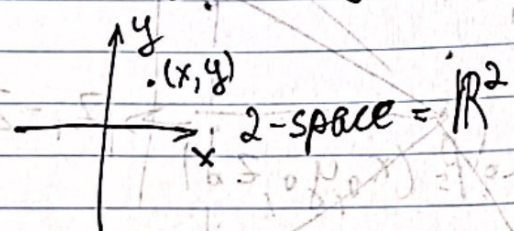 y
.(x,y)
2-space = ℝ²
x